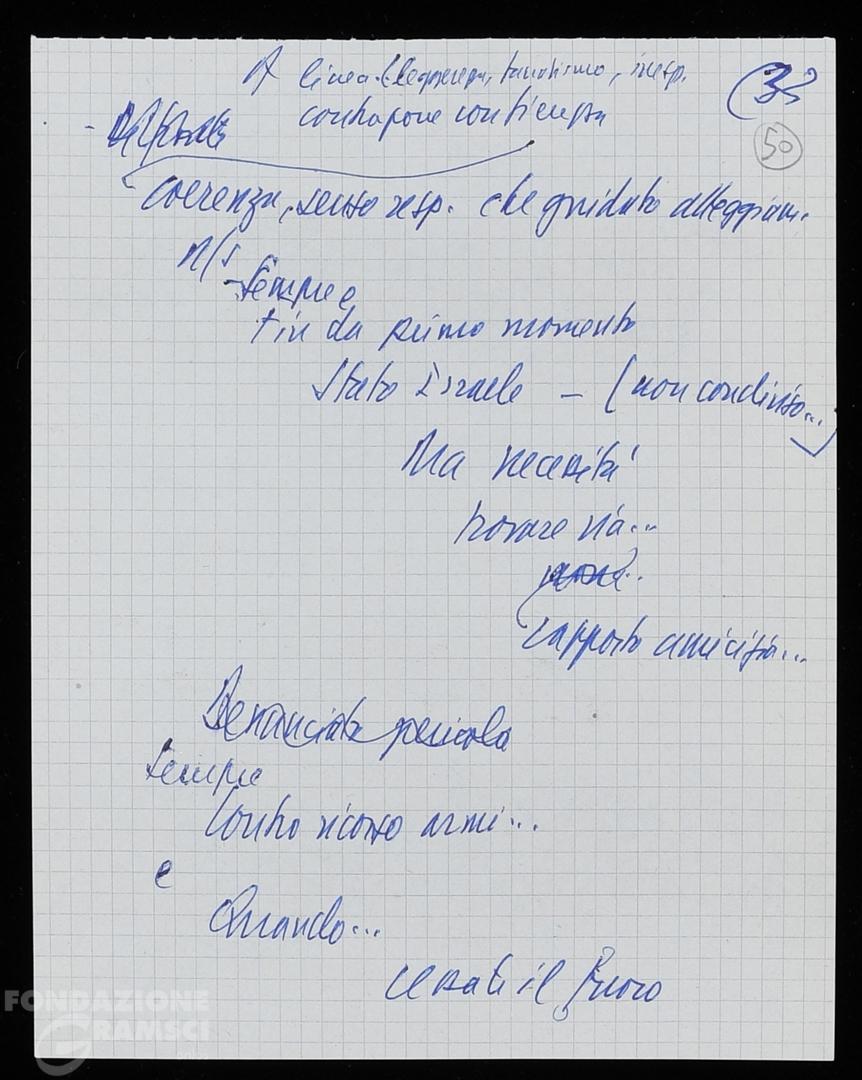 A linea (leggerezza, fanatismo, irresp.
contrapone contienza
38
50
-
coerenza, senso resp. che guidato atteggiam.
n/s
- sempre e
fin da primo momento
Stato Israele – (non condiviso...)
Ma necessità
trovare via...
rapporto amicizia...
Denunciato pericolo
sempre
contro ricorso armi...
e
Quando...
cessate il fuoco
FONDAZIONE
GRAMSCI